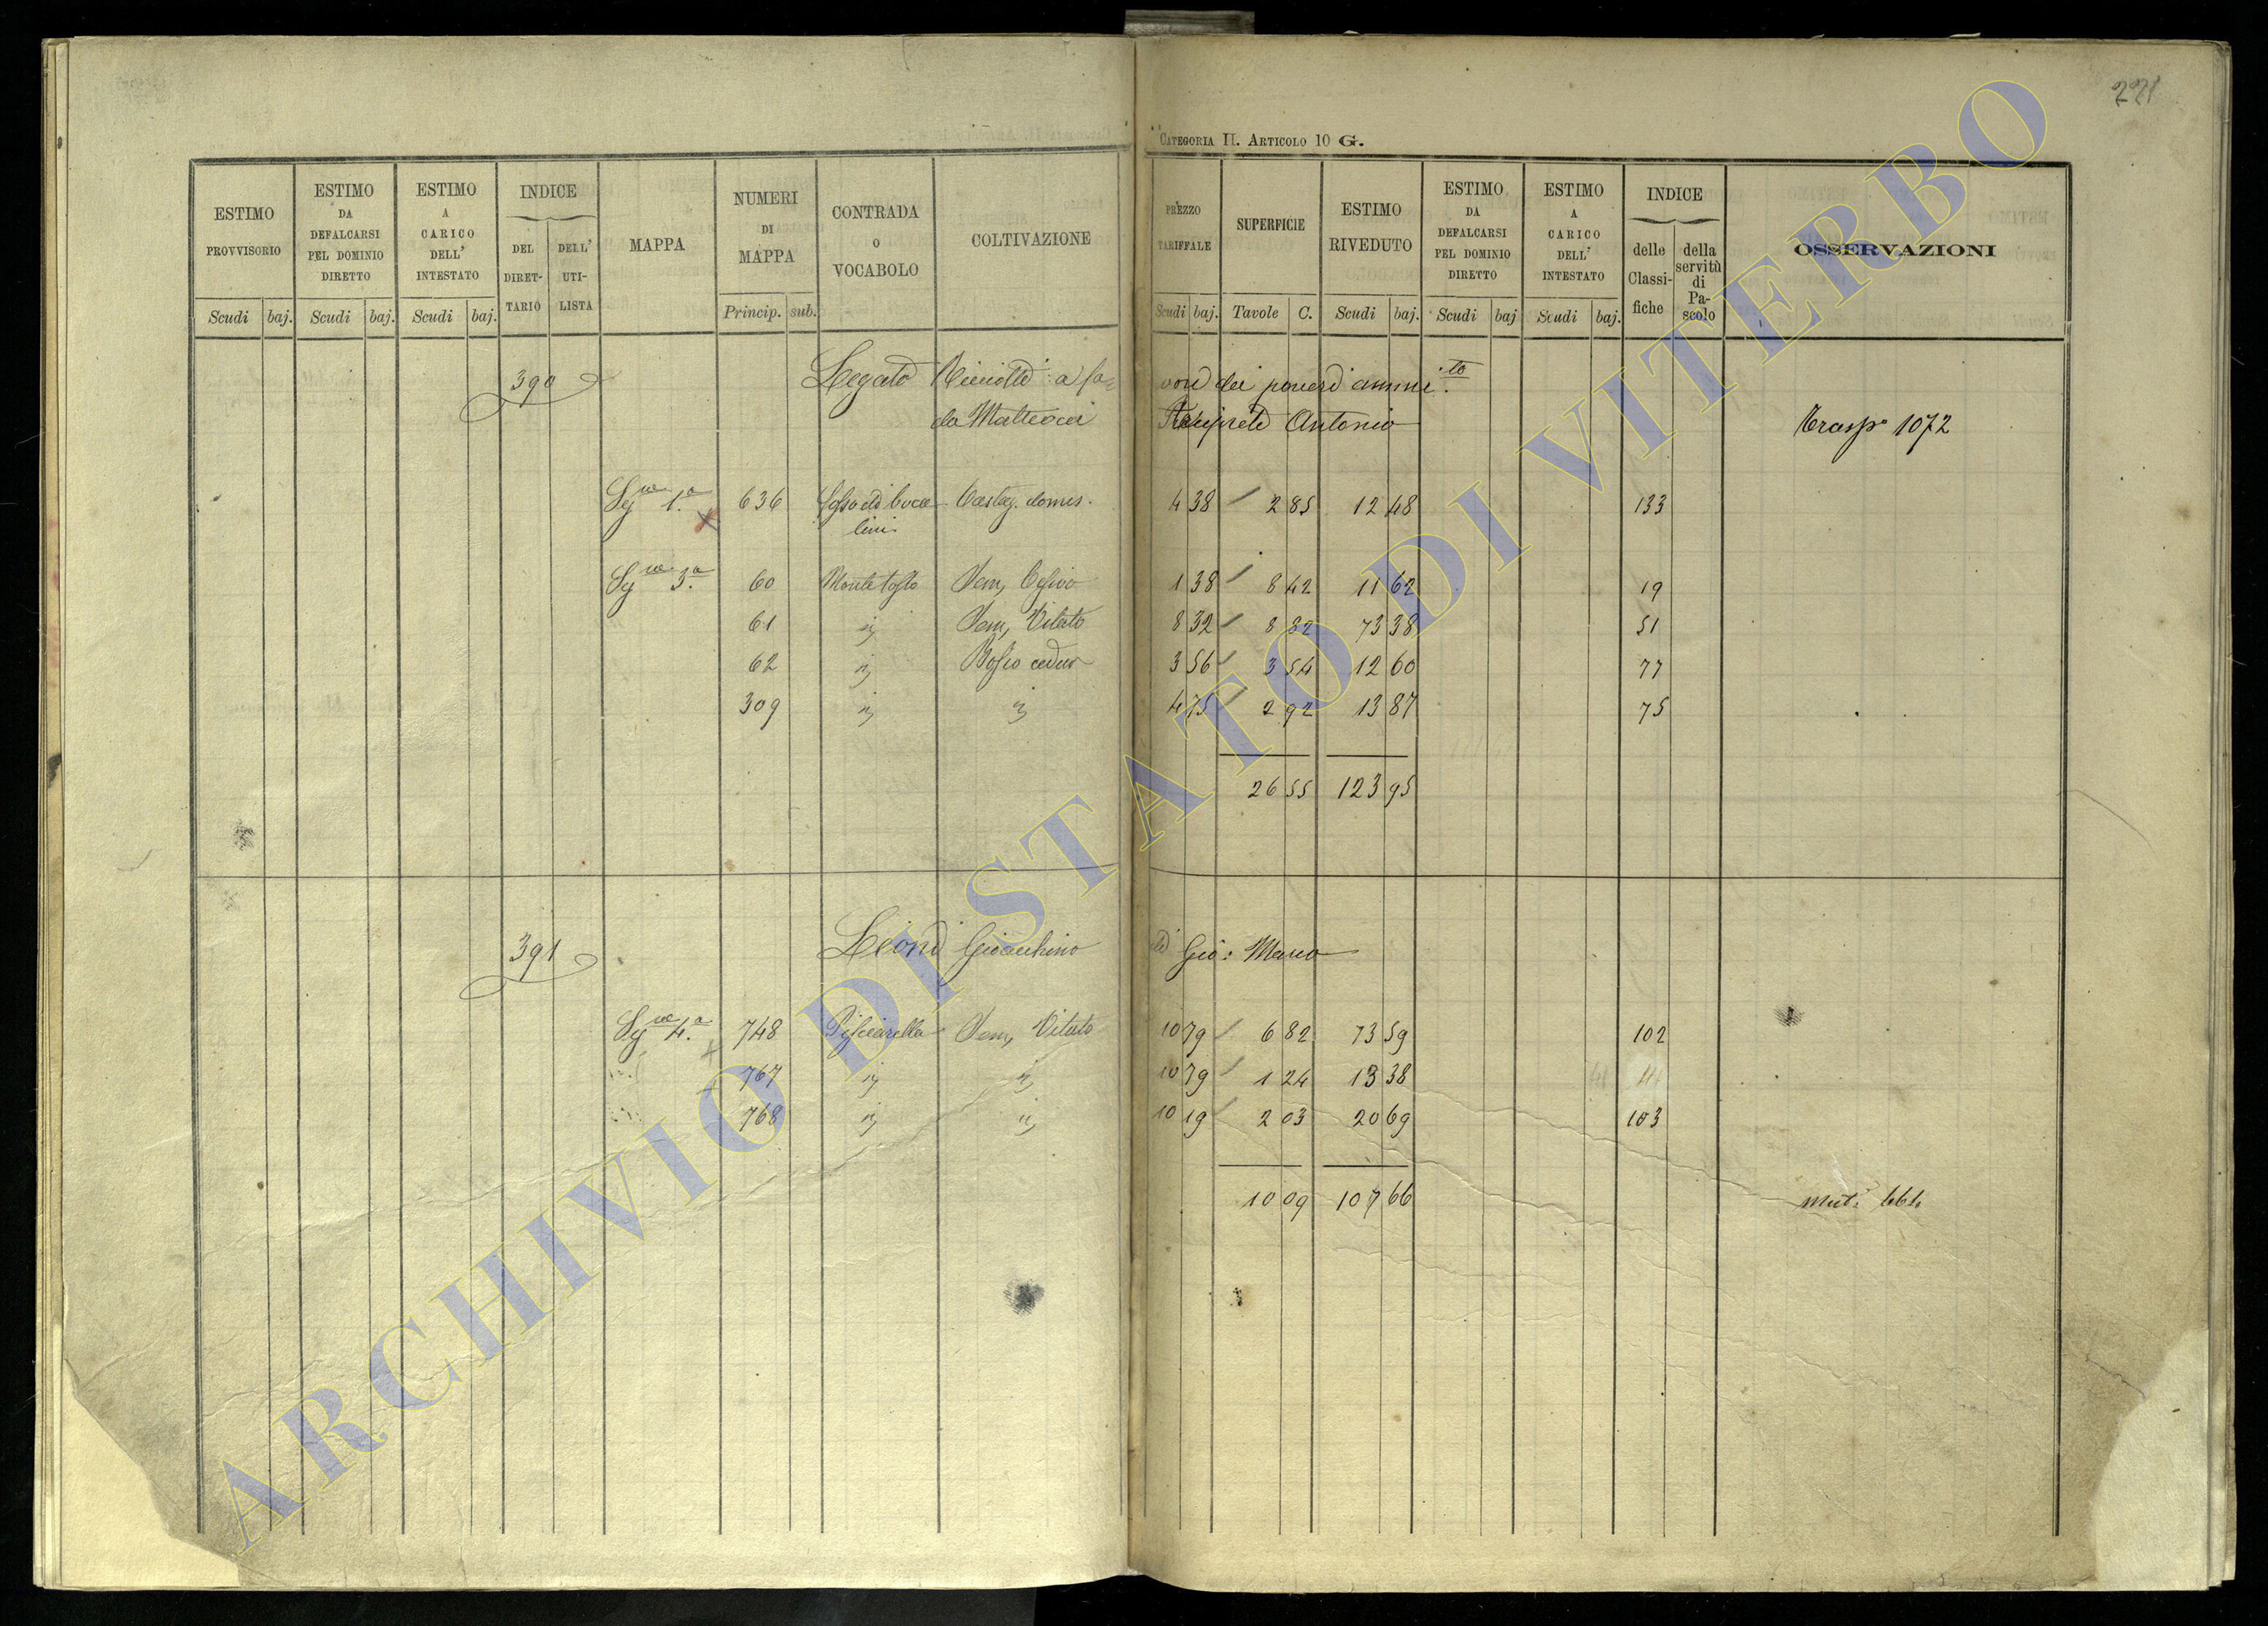 221
CATEGORIA II. ARTICOLO 10 G.
ESTIMO PROVVISORIO Scudi baj.
ESTIMO DA DEFALCARSI PEL DOMINIO DIRETTO Scudi baj.
ESTIMO A CARICO DELL' INTESTATO Scudi baj.
INDICE DEL DIRETTARIO DELL' UTILISTA
MAPPA
NUMERI DI MAPPA Princip. sub.
CONTRADA O VOCABOLO
COLTIVAZIONE
PREZZO TARIFFALE Scudi baj.
SUPERFICIE Tavole C.
ESTIMO RIVEDUTO Scudi baj.
ESTIMO DA DEFALCARSI PEL DOMINIO DIRETTO Scudi baj
ESTIMO A CARICO DELL' INTESTATO Scudi baj.
INDICE delle Classifiche della servitù di Pascolo
OSSERVAZIONI
390 Legato a fa= vore dei poveri ammi.to
da Matteocci Arciprete Antonio Trasp° 1072
1.a 636 Castag. domes. 4 38 2 85 12 48 133
3.a 60 Monte tosto Sem, 1 38 8 42 11 62 19
61 Sem, Vitato 8 32 8 82 73 38 51
62 Bosco ceduo 3 56 3 54 12 60 77
309 4 75 2 92 13 87 75
26 55 123 95
391 Leoni Gioacchino di Gio: Marco
4.a 748 Pisciarella Sem, Vitato 10 79 6 82 73 59 102
767 10 79 1 24 13 38
768 10 19 2 03 20 69 103
10 09 107 66
ARCHIVIO DI STATO DI VITERBO